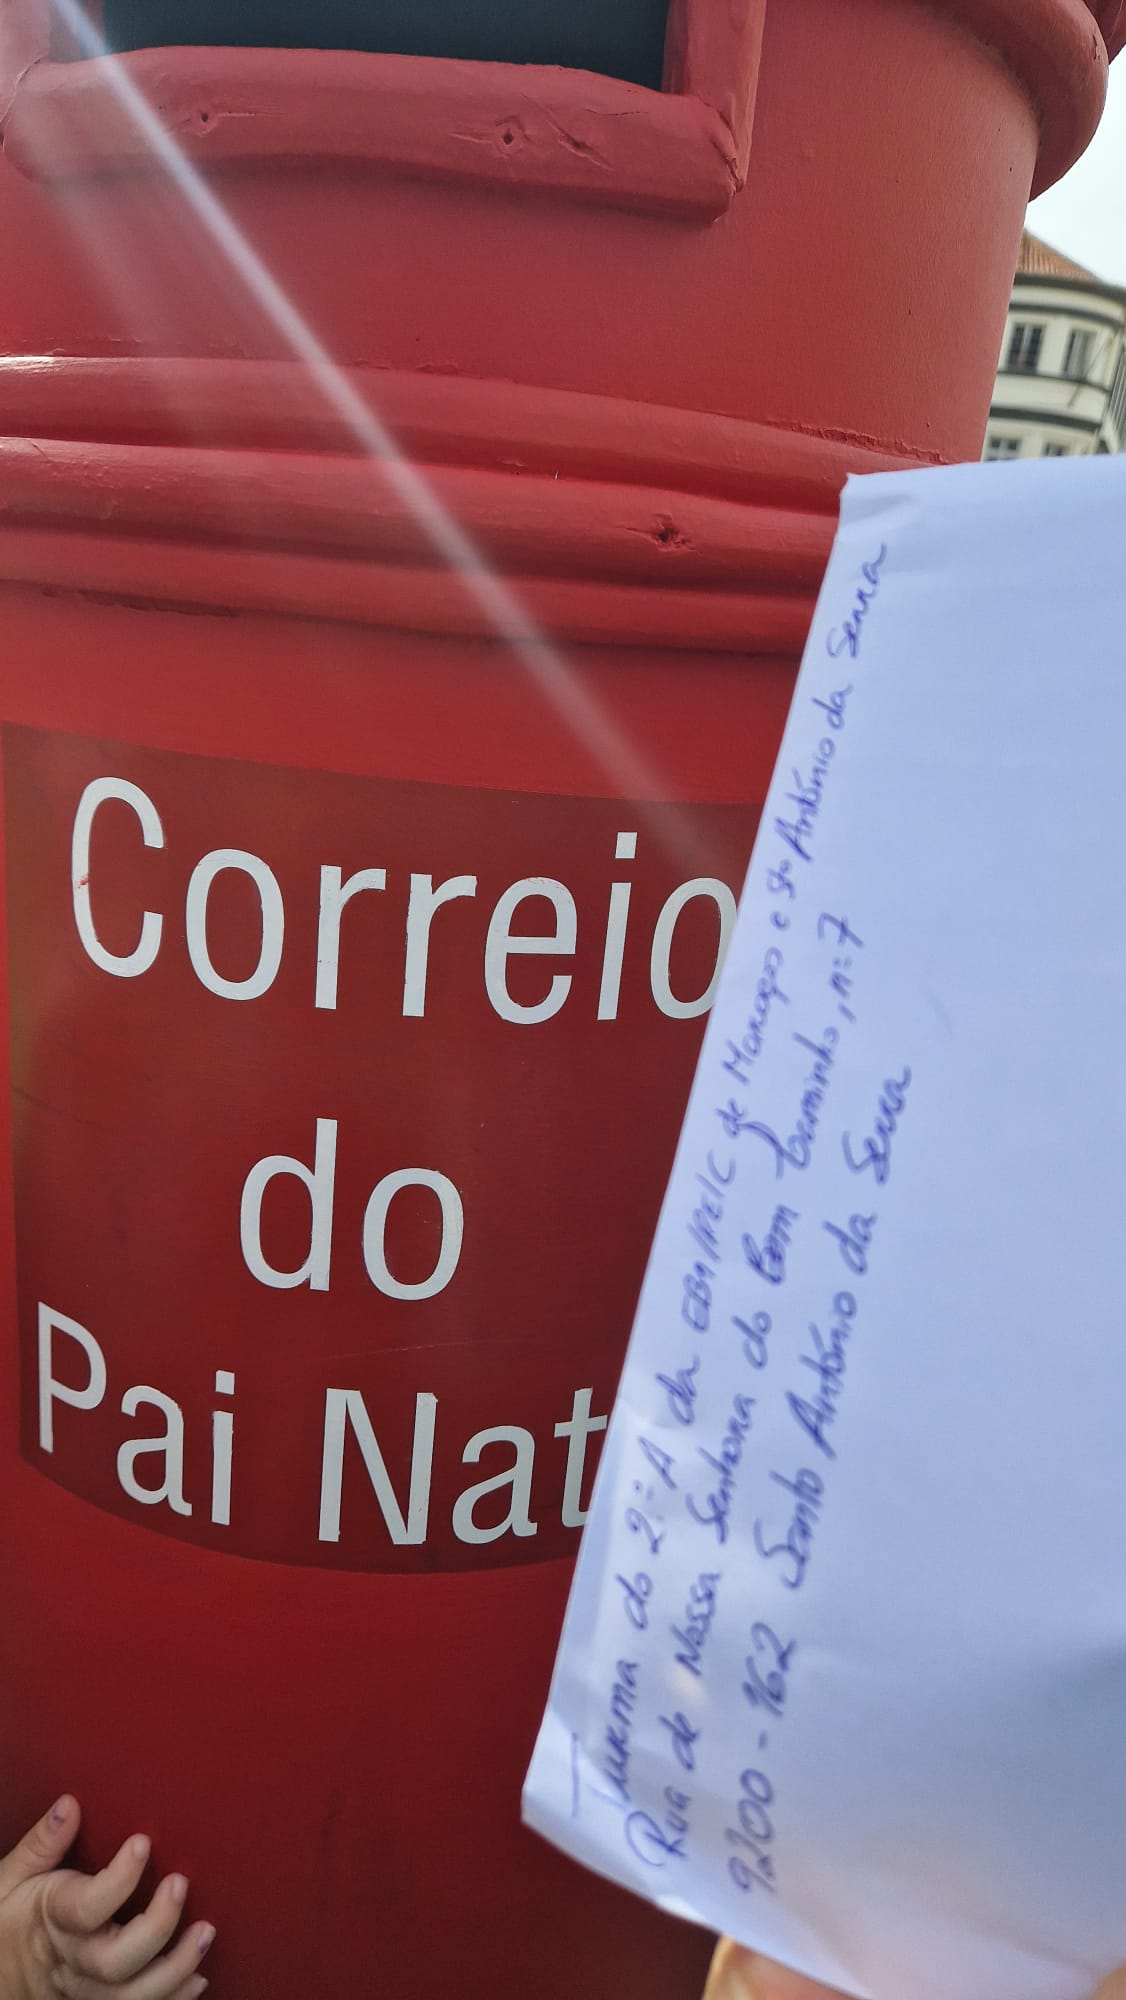 Correio
do
Pai Nat
Turma do 2º A da EB1/PE/C de Maroços e Stº António da Serra
Rua de Nossa Senhora do Bom Caminho, nº 7
9200-162 Santo António da Serra